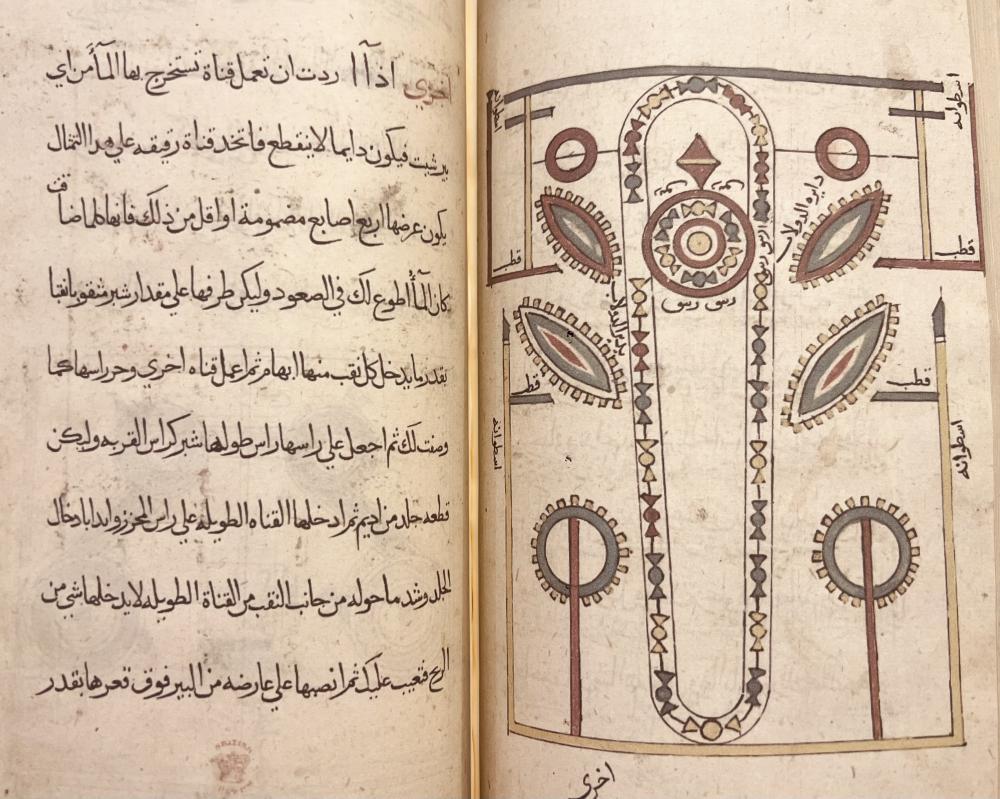 اخري اذا اردت ان تعمل قناة تستخرج بها المآ من اي
بير شيت فيكون دايما لا ينقطع فاتخذ قناة رقيقه علي هذا التمثال
يكون عرضها اربع اصابع مضمومة او اقل من ذلك فانها كلما ضاقت
كان المآ أطوع لك في الصعود وليكن طرفها علي مقدار شبر مثقوبا نقبا
بقدر ما يدخل كل نقب منها ابهام ثم اعمل قناه اخري وحد راسها كما
وصفت لك ثم اجعل علي راسها راس طولها شبر كراس القربه وليكن
قطعه جلد من اديم ثم ادخلها القناه الطويله علي راس المحزز وابدا بادخال
الجلد وشد ما حوله من جانب النقب من القناة الطويله لا يدخلها شي من
الريح فتعيب عليك ثم انصبها علي عارضه من البير فوق قعرها بقدر
اسطوانه
اسطوانه
دايره الدولاب
قطب
قطب
قطب
قطب
اسطوانه
اسطوانه
اخري